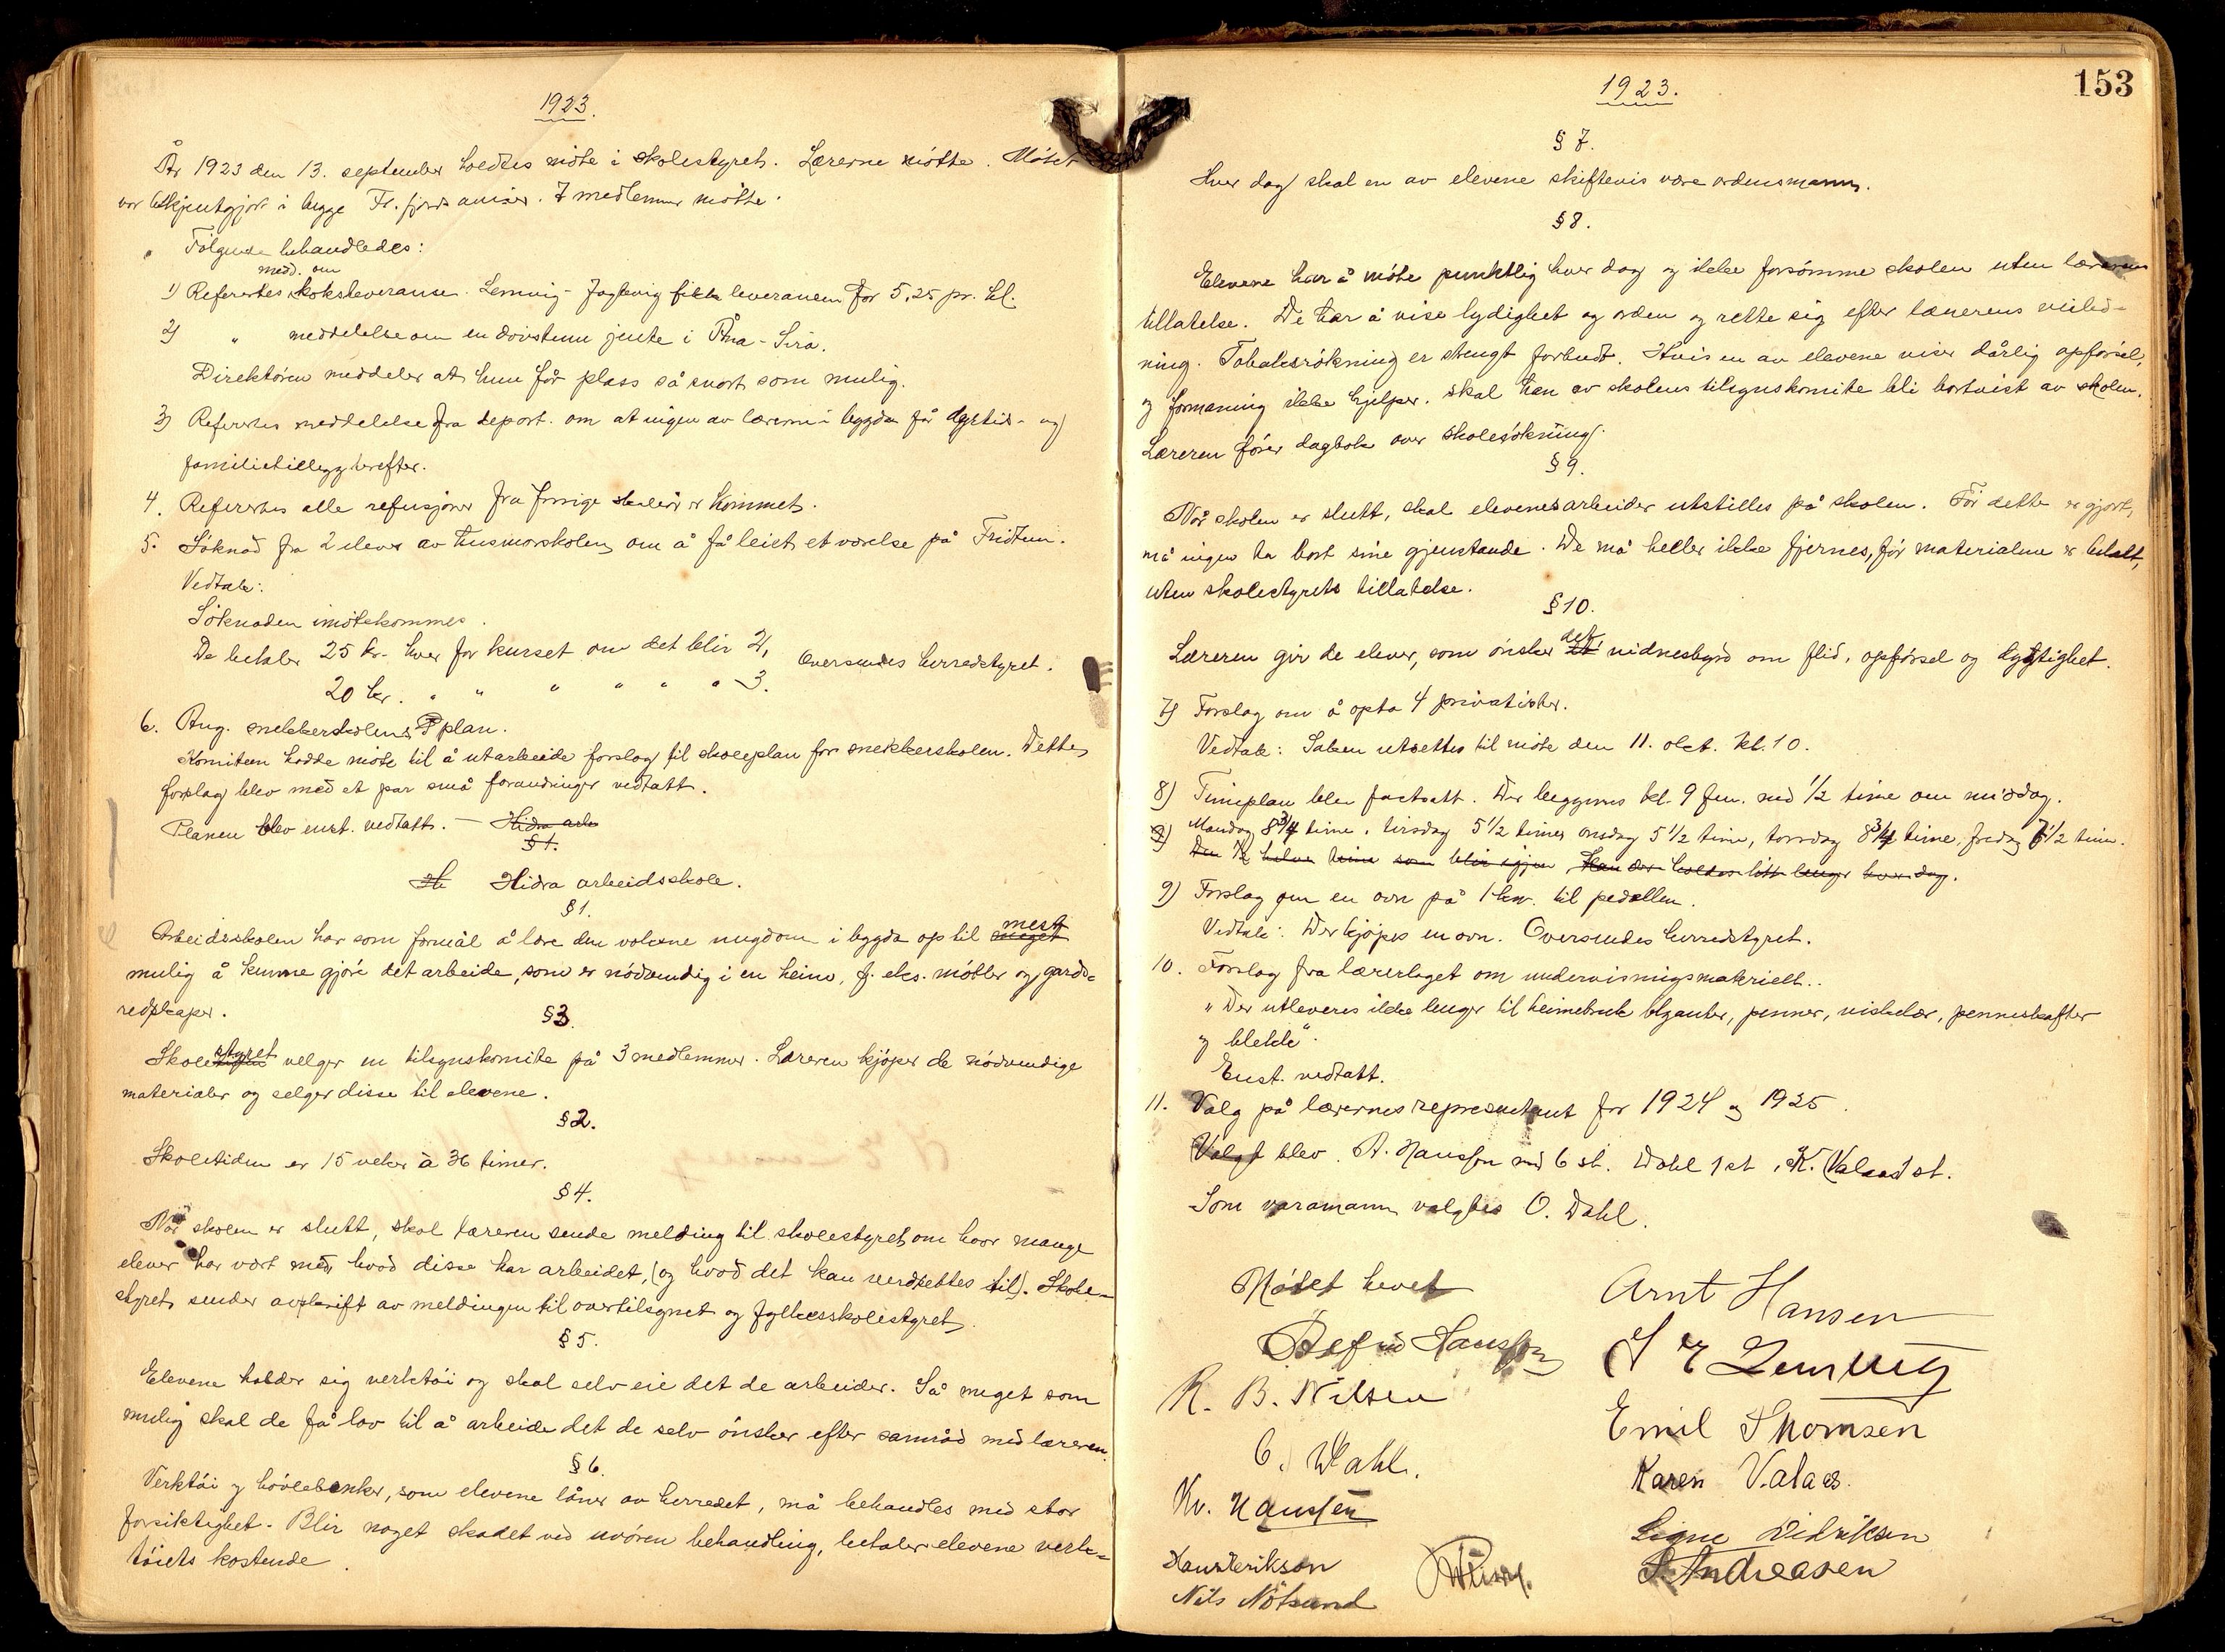 1923.
År 1923 den 13. september holdtes møte i skolestyret. Lærerne møtte. Møtet
var bekjentgjort i begge Fl.fjords aviser. 7 medlemmer møtte.
Følgende behandledes:
medd. om
1) Refertes koksleveranse. Lemvig - Jagtevig fikk leveransen for 5,25 pr. hl.
2) " meddelelse om en døvstum jente i Åna-Sira.
Direktøren meddeler at hun får plass så snart som mulig.
3) Refertes meddelelse fra depart. om at ingen av lærerne i bygda får dyrtids- og
familietillegg herefter.
4. Refertes alle refusjoner fra forrige skoleår er kommet.
5. Søknad fra 2 elever av husmorskolen om å få leiet et værelse på Fridtun.
Vedtak:
Søknaden imøtekommes.
De betaler 25 kr. hver for kurset om det blir 2,
20 kr. " " " " " " 3. Oversendes herredstyret.
6. Ang. snekkerskolens plan.
Komiteen hadde møte til å utarbeide forslag til skoleplan for snekkerskolen. Dette
forslag blev med et par små forandringer vedtatt.
Planen blev enst. vedtatt. — Hidra arb
§1.
H Hidra arbeidsskole.
§1.
Arbeidsskolen har som formål å lære den voksne ungdom i bygda op til meget mest
mulig å kunne gjøre det arbeide, som er nødvendig i en heim, f. eks. møbler og gards-
redskaper.
§3.
Skolestyret velger en tilsynskomite på 3 medlemmer. Læreren kjøper de nødvendige
materialer og selger disse til elevene.
§2.
Skoletiden er 15 veker à 36 timer.
§4.
Når skolen er slutt, skal læreren sende melding til skolestyret om hvor mange
elever har vært med, hvad disse har arbeidet, (og hvad det kan verdsettes til). Skole-
styret sender avskrift av meldingen til overtilsynet og fylkesskolestyret.
§5.
Elevene holder sig verktøi og skal selv eie det de arbeider. Så meget som
mulig skal de få lov til å arbeide det de selv ønsker efter samråd med læreren.
§6.
Verktøi og høvlebenker, som elevene låner av herredet, må behandles med stor
forsiktighet. Blir noget skadet ved uvøren behandling, betaler elevene verk-
tøiets kostende.
153
1923.
§7.
Hver dag skal en av elevene skiftevis være ordensmann.
§8.
Elevene har å møte punktlig hver dag og ikke forsømme skolen uten lærerens
tillatelse. De har å vise lydighet og orden og rette sig efter lærerens veiled-
ning. Tobaksrøkning er strengt forbudt. Hvis en av elevene viser dårlig opførsel,
og formaning ikke hjelper, skal han av skolens tilsynskomite bli bortvist av skolen.
Læreren fører dagbok over skolesøkning.
§9.
Når skolen er slutt, skal elevenes arbeider utstilles på skolen. Før dette er gjort,
må ingen ta bort sine gjenstande. De må heller ikke fjernes, før materialene er betalt,
uten skolestyrets tillatelse.
§10.
Læreren gir de elever, som ønsker det vidnesbyrd om flid, opførsel og dyktighet.
7) Forslag om å opta 4 privatister.
Vedtak: Saken utsettes til møte den 11. okt. kl. 10.
8) Timeplan blev fastsatt. Der begynnes kl. 9 fm. med 1/2 time om middag.
Mandag 8 3/4 time, tirsdag 5 1/2 timer onsdag 5 1/2 time, torsdag 8 3/4 time, fredag 7 1/2 time.
9) Den 1/2 halve time som blir igjen, kan der holdes litt lenger hver dag.
9) Forslag om en ovn på 1 kw. til pedellen.
Vedtak: Der kjøpes en ovn. Oversendes herredstyret.
10. Forslag fra lærerlaget om undervisningsmateriell.
"Der utleveres ikke lenger til heimebruk blyanter, penner, viskelær, penneskafter
og blekk".
Enst. vedtatt.
11. Valg på lærernes representant for 1924 og 1925.
Valgt blev A. Hansson med 6 st. Dahl 1 st, K. Valaas 1 st.
Som varamann valgtes O. Dahl.
Møtet hevet
Arnt Hansen
Hansson
R. B. Nilsen
Lemvig
O. Dahl.
Emil Thomsen
Kv. Hanssen
Karen Valaas.
Signe Didriksen
Hans Erikson
S. Andreasen
Nils Nötsund